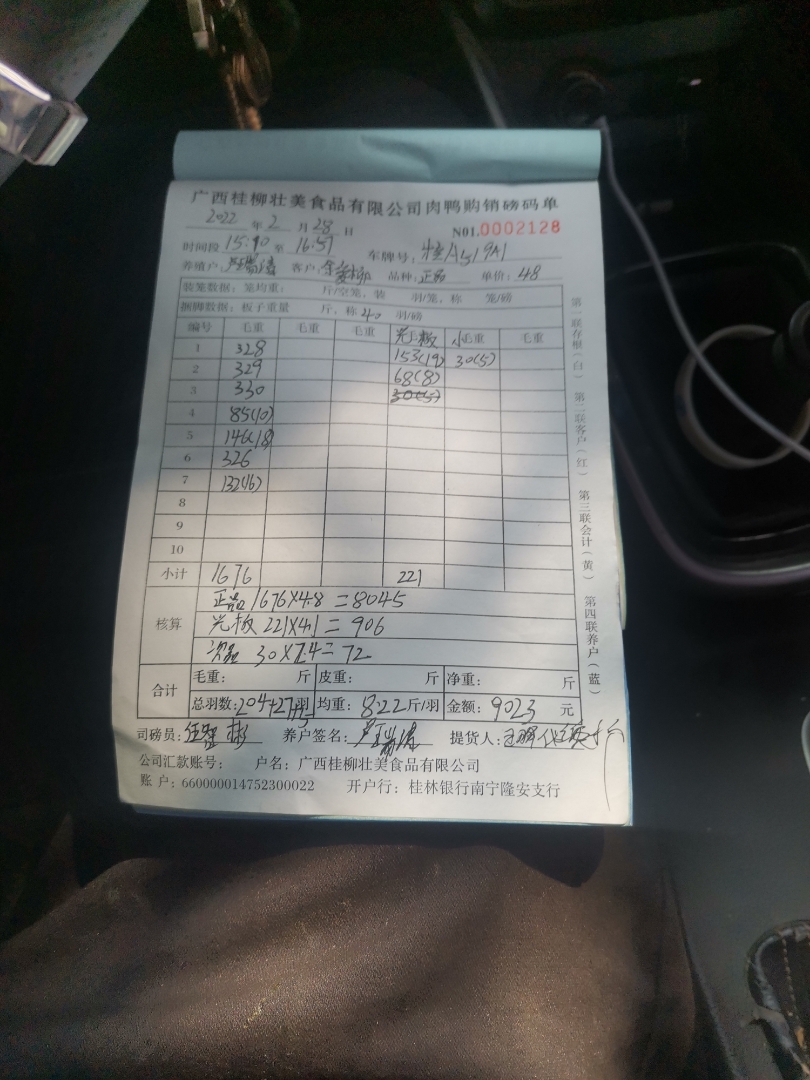 广西桂柳壮美食品有限公司肉鸭购销磅码单
2022 年 2 月 28 日 N01.0002128
时间段 15:10 至 16:51 车牌号: 桂A519A1
养殖户 客户: 品种: 正品 单价: 48
装笼数据: 笼均重: 斤/空笼, 装 羽/笼, 称 笼/磅
捆脚数据: 板子重量 斤, 称 40 羽/磅
编号 毛重 毛重 毛重 光毛板 小毛重 毛重
1 328 153(19) 30(5)
2 329 68(8)
3 330 30(5)
4 85(10)
5 146(18)
6 326
7 132(16)
8
9
10
小计 1676 221
核算 正品 1676X4.8=8045
光板 221X4.1=906
次品 30X2.4=72
合计 毛重: 斤 皮重: 斤 净重: 斤
总羽数: 204+27+5羽 均重: 8.22斤/羽 金额: 9023 元
司磅员: 养户签名: 提货人:
公司汇款账号: 户名: 广西桂柳壮美食品有限公司
账 户: 660000014752300022 开户行: 桂林银行南宁隆安支行
第一联存根(白) 第二联客户(红) 第三联会计(黄) 第四联养户(蓝)